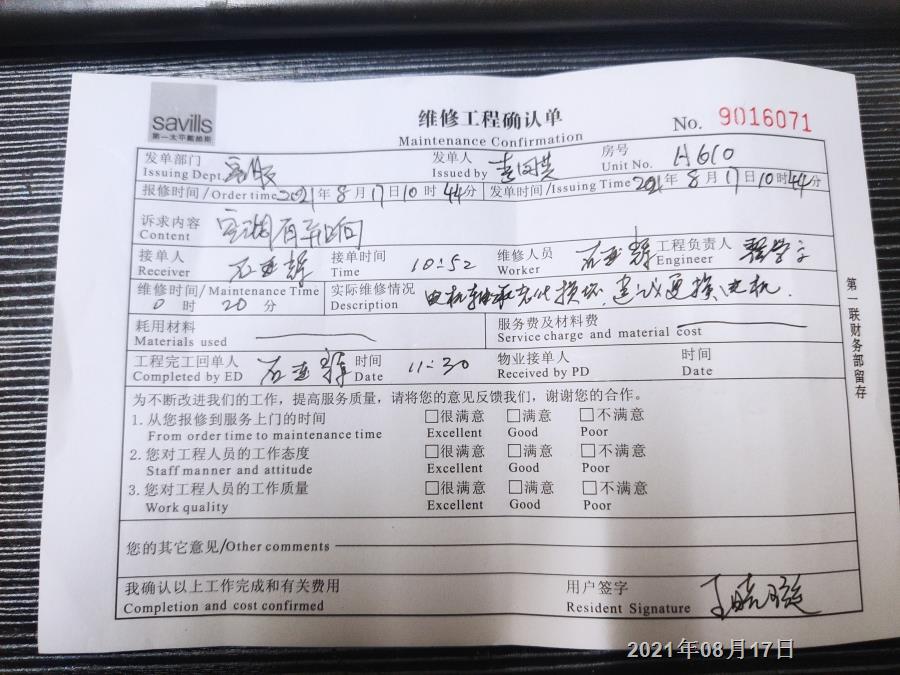 savills
第一太平戴维斯
维修工程确认单
Maintenance Confirmation
No. 9016071
发单部门 客服 发单人 房号 A610
Issuing Dept. Issued by Unit No.
报修时间/Order time 2021年8月17日10时44分 发单时间/Issuing Time 2021年8月17日10时44分
诉求内容 空调有异响
Content
接单人 石亚辉 接单时间 10:52 维修人员 石亚辉 工程负责人
Receiver Time Worker Engineer
维修时间/Maintenance Time 实际维修情况 电机轴承老化损坏,建议更换电机.
0时20分 Description
耗用材料 服务费及材料费
Materials used Service charge and material cost
工程完工回单人 石亚辉 时间 11:30 物业接单人 时间
Completed by ED Date Received by PD Date
为不断改进我们的工作，提高服务质量，请将您的意见反馈我们，谢谢您的合作。
1.从您报修到服务上门的时间 □很满意 □满意 □不满意
From order time to maintenance time Excellent Good Poor
2.您对工程人员的工作态度 □很满意 □满意 □不满意
Staff manner and attitude Excellent Good Poor
3.您对工程人员的工作质量 □很满意 □满意 □不满意
Work quality Excellent Good Poor
您的其它意见/Other comments
我确认以上工作完成和有关费用 用户签字
Completion and cost confirmed Resident Signature
第一联财务部留存
2021年08月17日